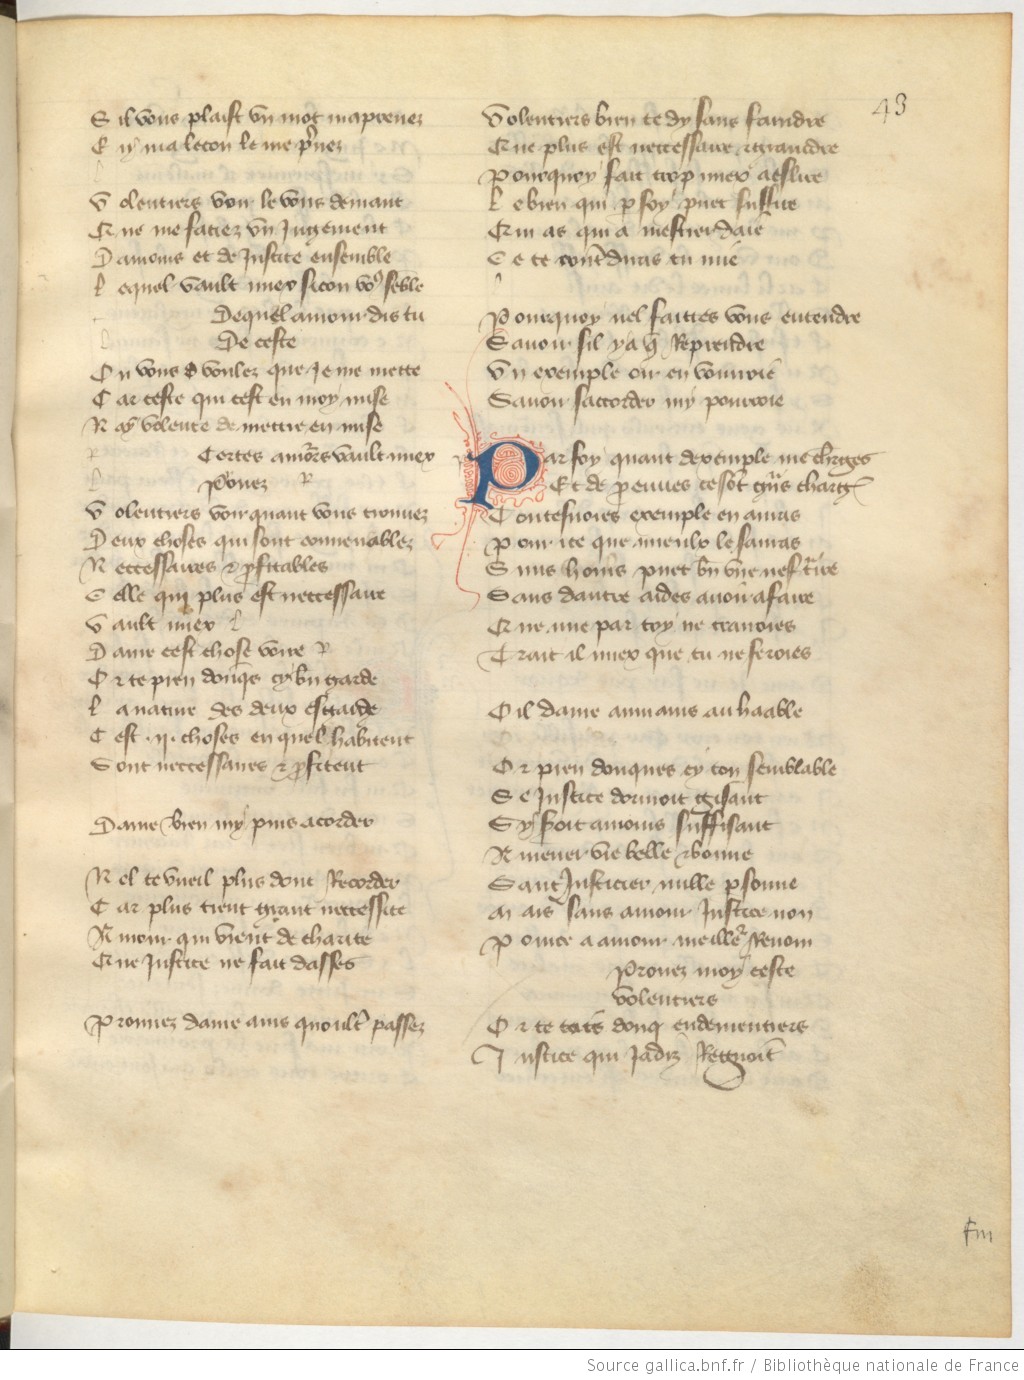 43
S il vous plaist un mot maprenez
E n ma lecon le me prenez
V olentiers voir le vous demant
Q ue me faciez un Jugement
D amours et de Justice ensemble
L equel vault miex selon vous semble
Dequel amour dis tu
De ceste
O u vous voulez que Je me mette
C ar ceste qui cest en moy mise
N ay volente de mettre en mise
Certes amours vault miex
Prouvez
V olentiers voir quant vous trouvez
D eux choses qui sont convenables
N eccessaires et profitables
C elle qui plus est neccessaire
V ault miex
D ame cest chose voire
O r te pren donques cy bn garde
L a nature des deux esgarde
C est .ii. choses en quel habitent
S ont neccessaires et profitent
Dame bien my puis acorder
N el te vueil plus dont Recorder
C ar plus tient grant neccessite
A mour qui vient de charite
Q ue Justice ne fait dasses
Prouvez dame ains quoultre passez
Volentiers bien te dy sans faindre
Q ue plus est neccessaire et graindre
P ourquoy fait trop miex a eslire
L e bien qui par soy puet suffire
Q un as qui a mestier daie
C e te contrediras tu mie
Pourquoy nel faictes vous entendre
Savoir sil y a que Reprendre
Un exemple oir en vouroie
Savoir saccorder my pouroie
P ar soy quant dexemple me charges
Et de preuves ce sont griefs charges
T outesvoies exemple en auras
P our ice que mieulx le sauras
S uns homs puet bn une nef traire
S ans dautre aides avoir a faire
Q ue une par toy ne trairoies
T rait il miex que tu ne feroies
O il dame aumains au haable
O r pren donques cy ton semblable
S e Justice dormoit gisant
S y soit amours suffisant
A mener vie belle et bonne
S ans Justicier nulle personne
M ais sans amour Justice non
P ource a amour meilleur Renom
Prouvez moy ceste
Volentiers
O r te tais donq endementiers
J ustice qui Jadiz Regnoit
Source gallica.bnf.fr / Bibliothèque nationale de France